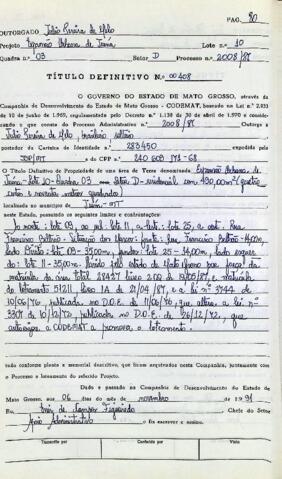 PAG. 80
OUTORGADO Julio Pereira de Melo
Projeto Expansão Urbana de Juína Lote no 10
Quadra n.o 03 Setor D Processo n.o 2008/87
TÍTULO DEFINITIVO N.o 00408
O GOVERNO DO ESTADO DE MATO GROSSO, através da
Companhia de Desenvolvimento do Estado de Mato Grosso - CODEMAT, baseado na Lei n.o 2.933
de 10 de junho de 1969, regulamentado pelo Decreto n.o 1.138 de 30 de abril de 1970 e considerando
o que consta do Processo Administrativo n.o 2008/87 Outorga a
Julio Pereira de Melo, brasileiro solteiro
portador da Carteira de Identidade n.o 283450 expedida pelo
SSP/MT e do CPF n.o
O Título Definitivo de Propriedade de uma área de Terra denominada Expansão Urbana de
Juína - Lote 10 - Quadra 03 - Setor D - residencial com 490,00m²
localizada no município de Juína - MT
neste Estado, possuindo os seguintes limites e confrontações:
Ao norte: lote 03, ao sul: lote 11, a leste: lote 25, a oeste: Rua
Francisco
lado Direito: lote 03 - 35,00m, fundos: lote 25 - 14,00m, lado esquer
do: lote 11 - 35,00m. pelo Estado de Mato Grosso por força da
matrícula da área total 28427 livro 2
loteamento 51211 livro 1A de 21/04/87, e a lei nº 3744 de
10/06/76, publicada no D.O.E. de 11/06/76, que altera a lei nº
3307 de 10/12/72, publicada no D.O.E. de 26/12/72, que
autoriza a CODEMAT a promover o loteamento.
tudo conforme planta e memorial descritivo, que foram arquivados nesta Companhia, juntamente com
o Processo e loteamento do referido Projeto.
Dado e passado na Companhia de Desenvolvimento do Estado de
Mato Grosso, aos 06 dias do mês de novembro 1991
Eu, Chefe do Setor
Apoio Administrativo O fiz escrever e assino.
Transcrito por Conferido por Visto